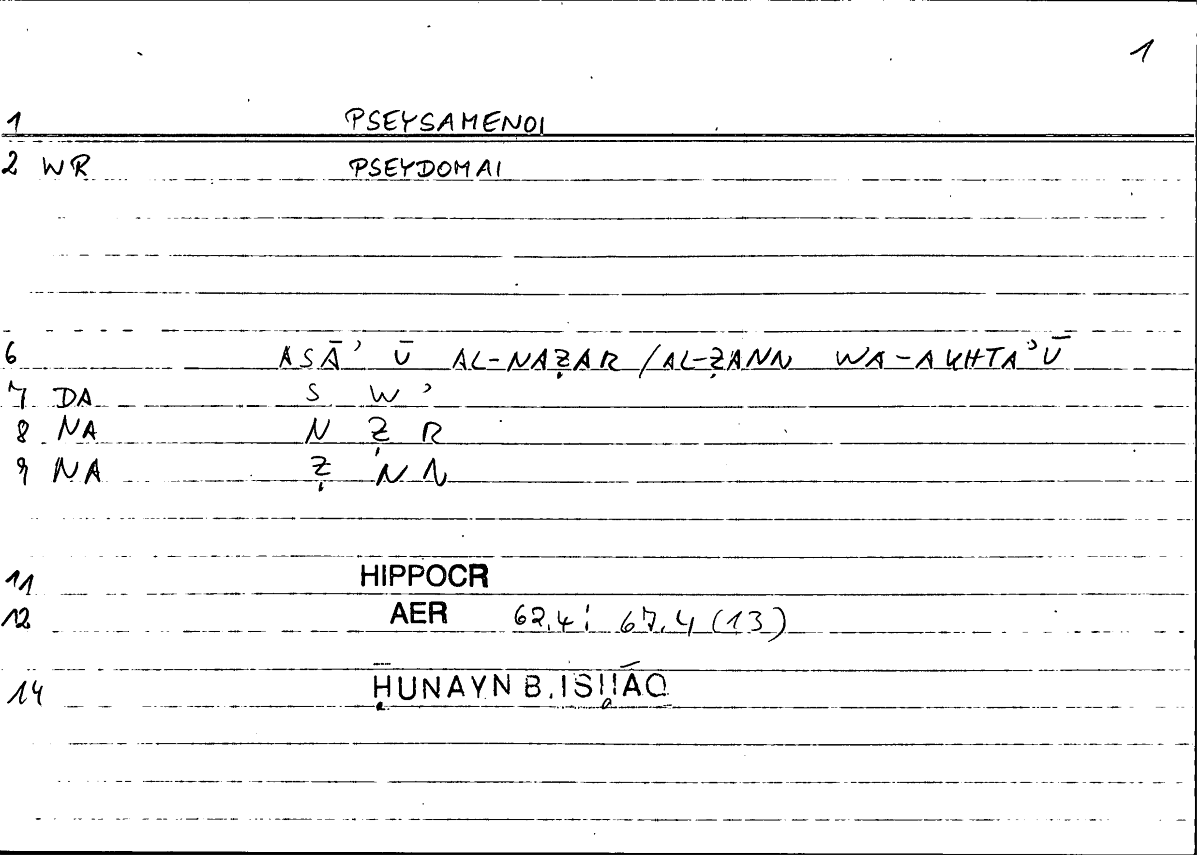 1
1 PSEYSAMENOI
2 WR PSEYDOMAI
6 ASĀʾ Ū AL-NAẒAR / AL-ẒANN WA-AKHTAʾŪ
7 DA S W ʾ
8 NA N Ẓ R
9 NA Ẓ N N
11 HIPPOCR
12 AER 62,4; 67,4 (13)
14 ḤUNAYN B. ISḤĀQ